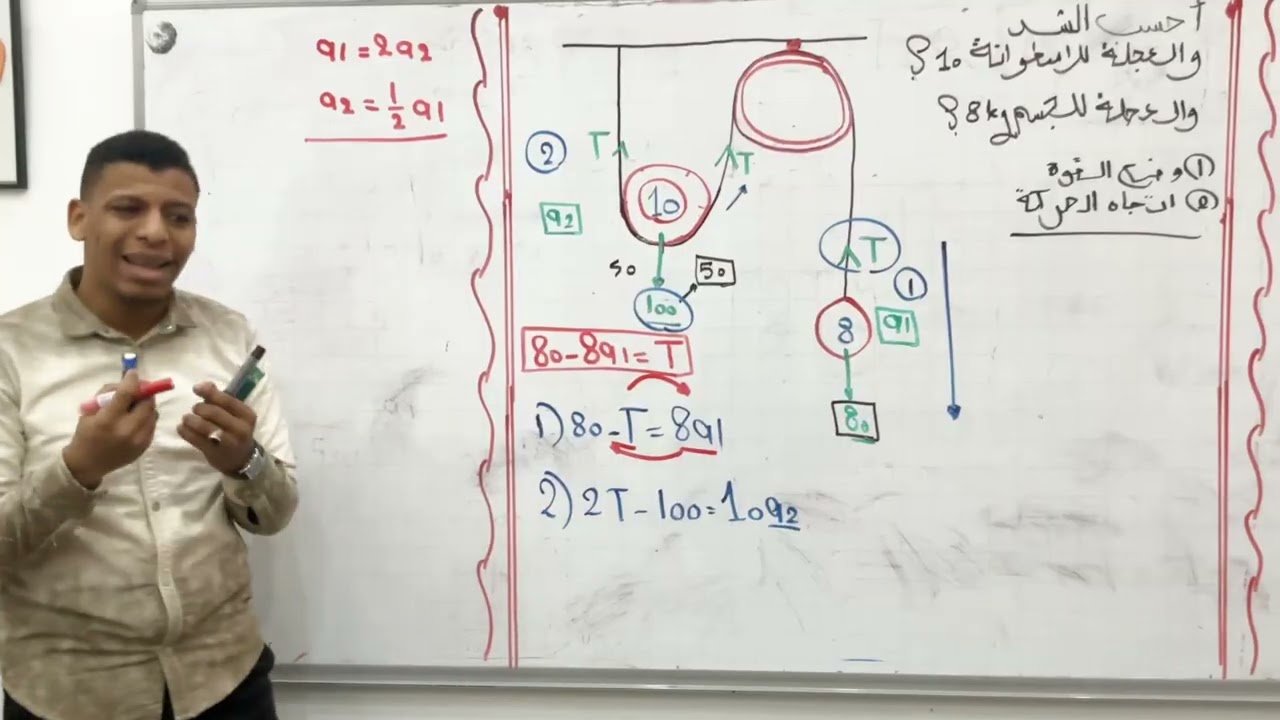 a1 = 2a2
a2 = 1/2 a1
أحسب الشد
والعجلة للاسطوانة 10 ؟
والعجلة للجسم 8 kg ؟
① وضع القوة
② اتجاه الحركة
② T T
10
a2
50 50
100
T ①
8 a1
80
80 - 8a1 = T
1) 80 - T = 8a1
2) 2T - 100 = 10a2